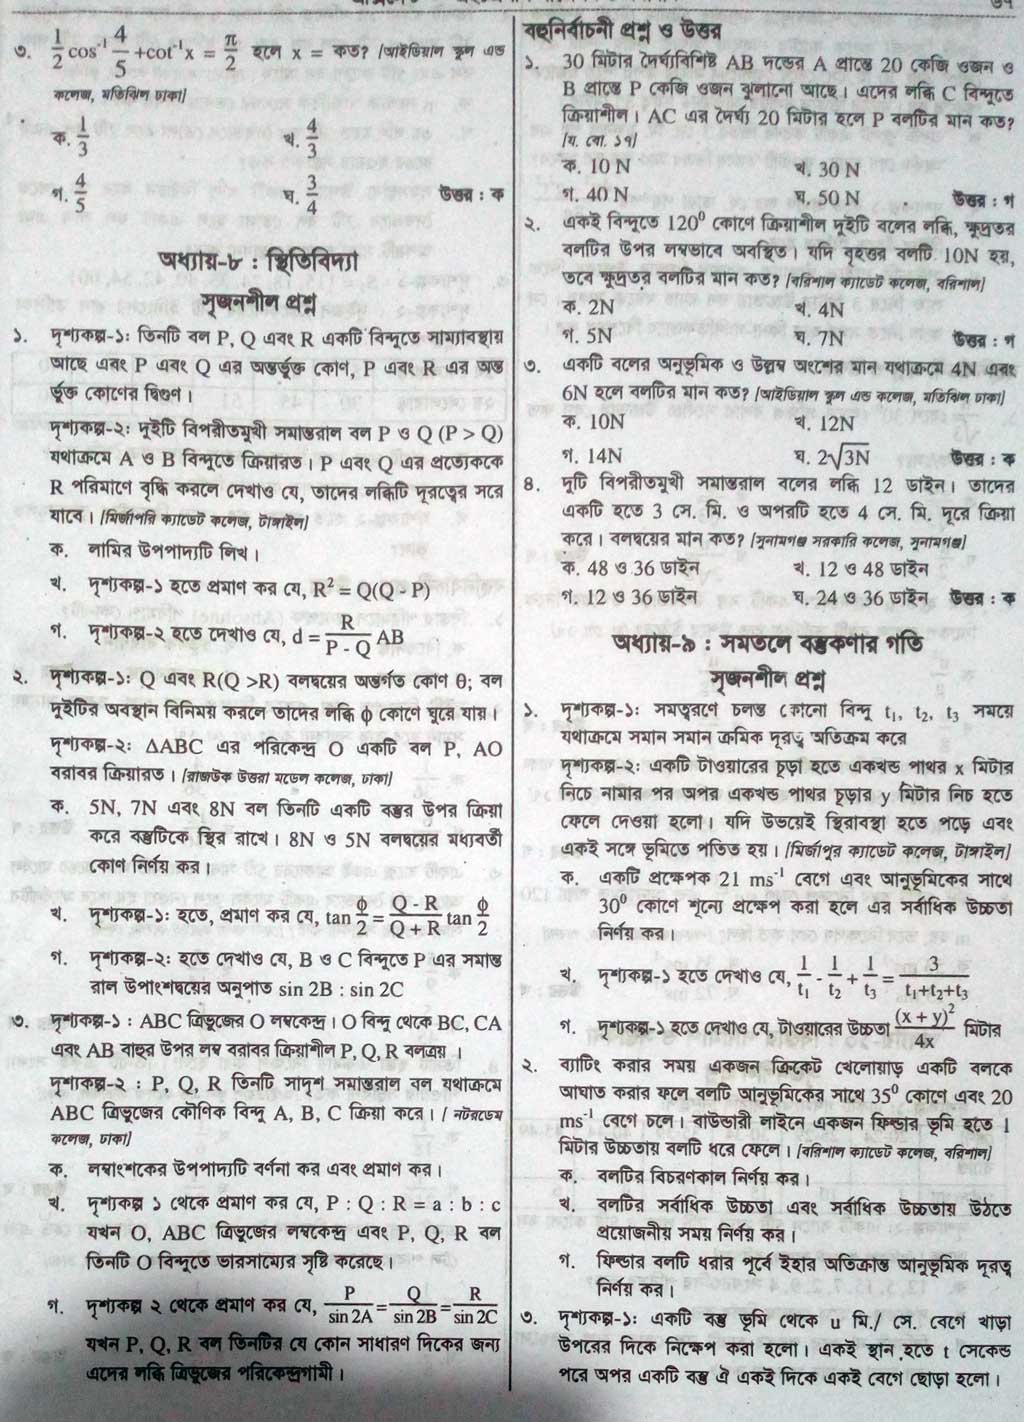 ৩. 1/2 cos⁻¹ 4/5 + cot⁻¹x = π/2 হলে x = কত? [আইডিয়াল স্কুল এন্ড
কলেজ, মতিঝিল ঢাকা]
ক. 1/3 খ. 4/3
গ. 4/5 ঘ. 3/4 উত্তর : ক
অধ্যায়-৮ : স্থিতিবিদ্যা
সৃজনশীল প্রশ্ন
১. দৃশ্যকল্প-১: তিনটি বল P, Q এবং R একটি বিন্দুতে সাম্যাবস্থায়
আছে এবং P এবং Q এর অন্তর্ভুক্ত কোণ, P এবং R এর অন্ত
র্ভুক্ত কোণের দ্বিগুণ।
দৃশ্যকল্প-২: দুইটি বিপরীতমুখী সমান্তরাল বল P ও Q (P > Q)
যথাক্রমে A ও B বিন্দুতে ক্রিয়ারত। P এবং Q এর প্রত্যেককে
R পরিমাণে বৃদ্ধি করলে দেখাও যে, তাদের লব্ধিটি d দূরত্বের সরে
যাবে। [মির্জাপুর ক্যাডেট কলেজ, টাঙ্গাইল]
ক. লামির উপপাদ্যটি লিখ।
খ. দৃশ্যকল্প-১ হতে প্রমাণ কর যে, R² = Q(Q - P)
গ. দৃশ্যকল্প-২ হতে দেখাও যে, d = R/(P - Q) AB
২. দৃশ্যকল্প-১: Q এবং R(Q >R) বলদ্বয়ের অন্তর্গত কোণ θ; বল
দুইটির অবস্থান বিনিময় করলে তাদের লব্ধি ϕ কোণে ঘুরে যায়।
দৃশ্যকল্প-২: ΔABC এর পরিকেন্দ্র O একটি বল P, AO
বরাবর ক্রিয়ারত। [রাজউক উত্তরা মডেল কলেজ, ঢাকা]
ক. 5N, 7N এবং 8N বল তিনটি একটি বস্তুর উপর ক্রিয়া
করে বস্তুটিকে স্থির রাখে। 8N ও 5N বলদ্বয়ের মধ্যবর্তী
কোণ নির্ণয় কর।
খ. দৃশ্যকল্প-১: হতে, প্রমাণ কর যে, tan ϕ/2 = (Q - R)/(Q + R) tan ϕ/2
গ. দৃশ্যকল্প-২: হতে দেখাও যে, B ও C বিন্দুতে P এর সমান্ত
রাল উপাংশদ্বয়ের অনুপাত sin 2B : sin 2C
৩. দৃশ্যকল্প-১ : ABC ত্রিভুজের O লম্বকেন্দ্র। O বিন্দু থেকে BC, CA
এবং AB বাহুর উপর লম্ব বরাবর ক্রিয়াশীল P, Q, R বলত্রয়।
দৃশ্যকল্প-২ : P, Q, R তিনটি সাদৃশ সমান্তরাল বল যথাক্রমে
ABC ত্রিভুজের কৌণিক বিন্দু A, B, C ক্রিয়া করে। [ নটরডেম
কলেজ, ঢাকা]
ক. লম্বাংশকের উপপাদ্যটি বর্ণনা কর এবং প্রমাণ কর।
খ. দৃশ্যকল্প ১ থেকে প্রমাণ কর যে, P : Q : R = a : b : c
যখন O, ABC ত্রিভুজের লম্বকেন্দ্র এবং P, Q, R বল
তিনটি O বিন্দুতে ভারসাম্যের সৃষ্টি করেছে।
গ. দৃশ্যকল্প ২ থেকে প্রমাণ কর যে, P/sin 2A = Q/sin 2B = R/sin 2C
যখন P, Q, R বল তিনটির যে কোন সাধারণ দিকের জন্য
এদের লব্ধি ত্রিভুজের পরিকেন্দ্রগামী।
বহুনির্বাচনী প্রশ্ন ও উত্তর
১. 30 মিটার দৈর্ঘ্যবিশিষ্ট AB দন্ডের A প্রান্তে 20 কেজি ওজন ও
B প্রান্তে P কেজি ওজন ঝুলানো আছে। এদের লব্ধি C বিন্দুতে
ক্রিয়াশীল। AC এর দৈর্ঘ্য 20 মিটার হলে P বলটির মান কত?
[য. বো. ১৭]
ক. 10 N খ. 30 N
গ. 40 N ঘ. 50 N উত্তর : গ
২. একই বিন্দুতে 120⁰ কোণে ক্রিয়াশীল দুইটি বলের লব্ধি, ক্ষুদ্রতর
বলটির উপর লম্বভাবে অবস্থিত। যদি বৃহত্তর বলটি 10N হয়,
তবে ক্ষুদ্রতর বলটির মান কত? [বরিশাল ক্যাডেট কলেজ, বরিশাল]
ক. 2N খ. 4N
গ. 5N ঘ. 7N উত্তর : গ
৩. একটি বলের অনুভূমিক ও উল্লম্ব অংশের মান যথাক্রমে 4N এবং
6N হলে বলটির মান কত? [আইডিয়াল স্কুল এন্ড কলেজ, মতিঝিল ঢাকা]
ক. 10N খ. 12N
গ. 14N ঘ. 2√3N উত্তর : ক
৪. দুটি বিপরীতমুখী সমান্তরাল বলের লব্ধি 12 ডাইন। তাদের
একটি হতে 3 সে. মি. ও অপরটি হতে 4 সে. মি. দূরে ক্রিয়া
করে। বলদ্বয়ের মান কত? [সুনামগঞ্জ সরকারি কলেজ, সুনামগঞ্জ]
ক. 48 ও 36 ডাইন খ. 12 ও 48 ডাইন
গ. 12 ও 36 ডাইন ঘ. 24 ও 36 ডাইন উত্তর : ক
অধ্যায়-৯ : সমতলে বস্তুকণার গতি
সৃজনশীল প্রশ্ন
১. দৃশ্যকল্প-১: সমত্বরণে চলন্ত কোনো বিন্দু t₁, t₂, t₃ সময়ে
যথাক্রমে সমান সমান ক্রমিক দূরত্ব অতিক্রম করে
দৃশ্যকল্প-২: একটি টাওয়ারের চূড়া হতে একখন্ড পাথর x মিটার
নিচে নামার পর অপর একখন্ড পাথর চূড়ার y মিটার নিচ হতে
ফেলে দেওয়া হলো। যদি উভয়েই স্থিরাবস্থা হতে পড়ে এবং
একই সঙ্গে ভূমিতে পতিত হয়। [মির্জাপুর ক্যাডেট কলেজ, টাঙ্গাইল]
ক. একটি প্রক্ষেপক 21 ms⁻¹ বেগে এবং আনুভূমিকের সাথে
30⁰ কোণে শূন্যে প্রক্ষেপ করা হলে এর সর্বাধিক উচ্চতা
নির্ণয় কর।
খ. দৃশ্যকল্প-১ হতে দেখাও যে, 1/t₁ - 1/t₂ + 1/t₃ = 3/(t₁+t₂+t₃)
গ. দৃশ্যকল্প-১ হতে দেখাও যে, টাওয়ারের উচ্চতা (x + y)²/4x মিটার
২. ব্যাটিং করার সময় একজন ক্রিকেট খেলোয়াড় একটি বলকে
আঘাত করার ফলে বলটি আনুভূমিকের সাথে 35⁰ কোণে এবং 20
ms⁻¹ বেগে চলে। বাউন্ডারী লাইনে একজন ফিল্ডার ভূমি হতে 1
মিটার উচ্চতায় বলটি ধরে ফেলে। [বরিশাল ক্যাডেট কলেজ, বরিশাল]
ক. বলটির বিচরণকাল নির্ণয় কর।
খ. বলটির সর্বাধিক উচ্চতা এবং সর্বাধিক উচ্চতায় উঠতে
প্রয়োজনীয় সময় নির্ণয় কর।
গ. ফিল্ডার বলটি ধরার পূর্বে ইহার অতিক্রান্ত আনুভূমিক দূরত্ব
নির্ণয় কর।
৩. দৃশ্যকল্প-১: একটি বস্তু ভূমি থেকে u মি./ সে. বেগে খাড়া
উপরের দিকে নিক্ষেপ করা হলো। একই স্থান হতে t সেকেন্ড
পরে অপর একটি বস্তু ঐ একই দিকে একই বেগে ছোড়া হলো।